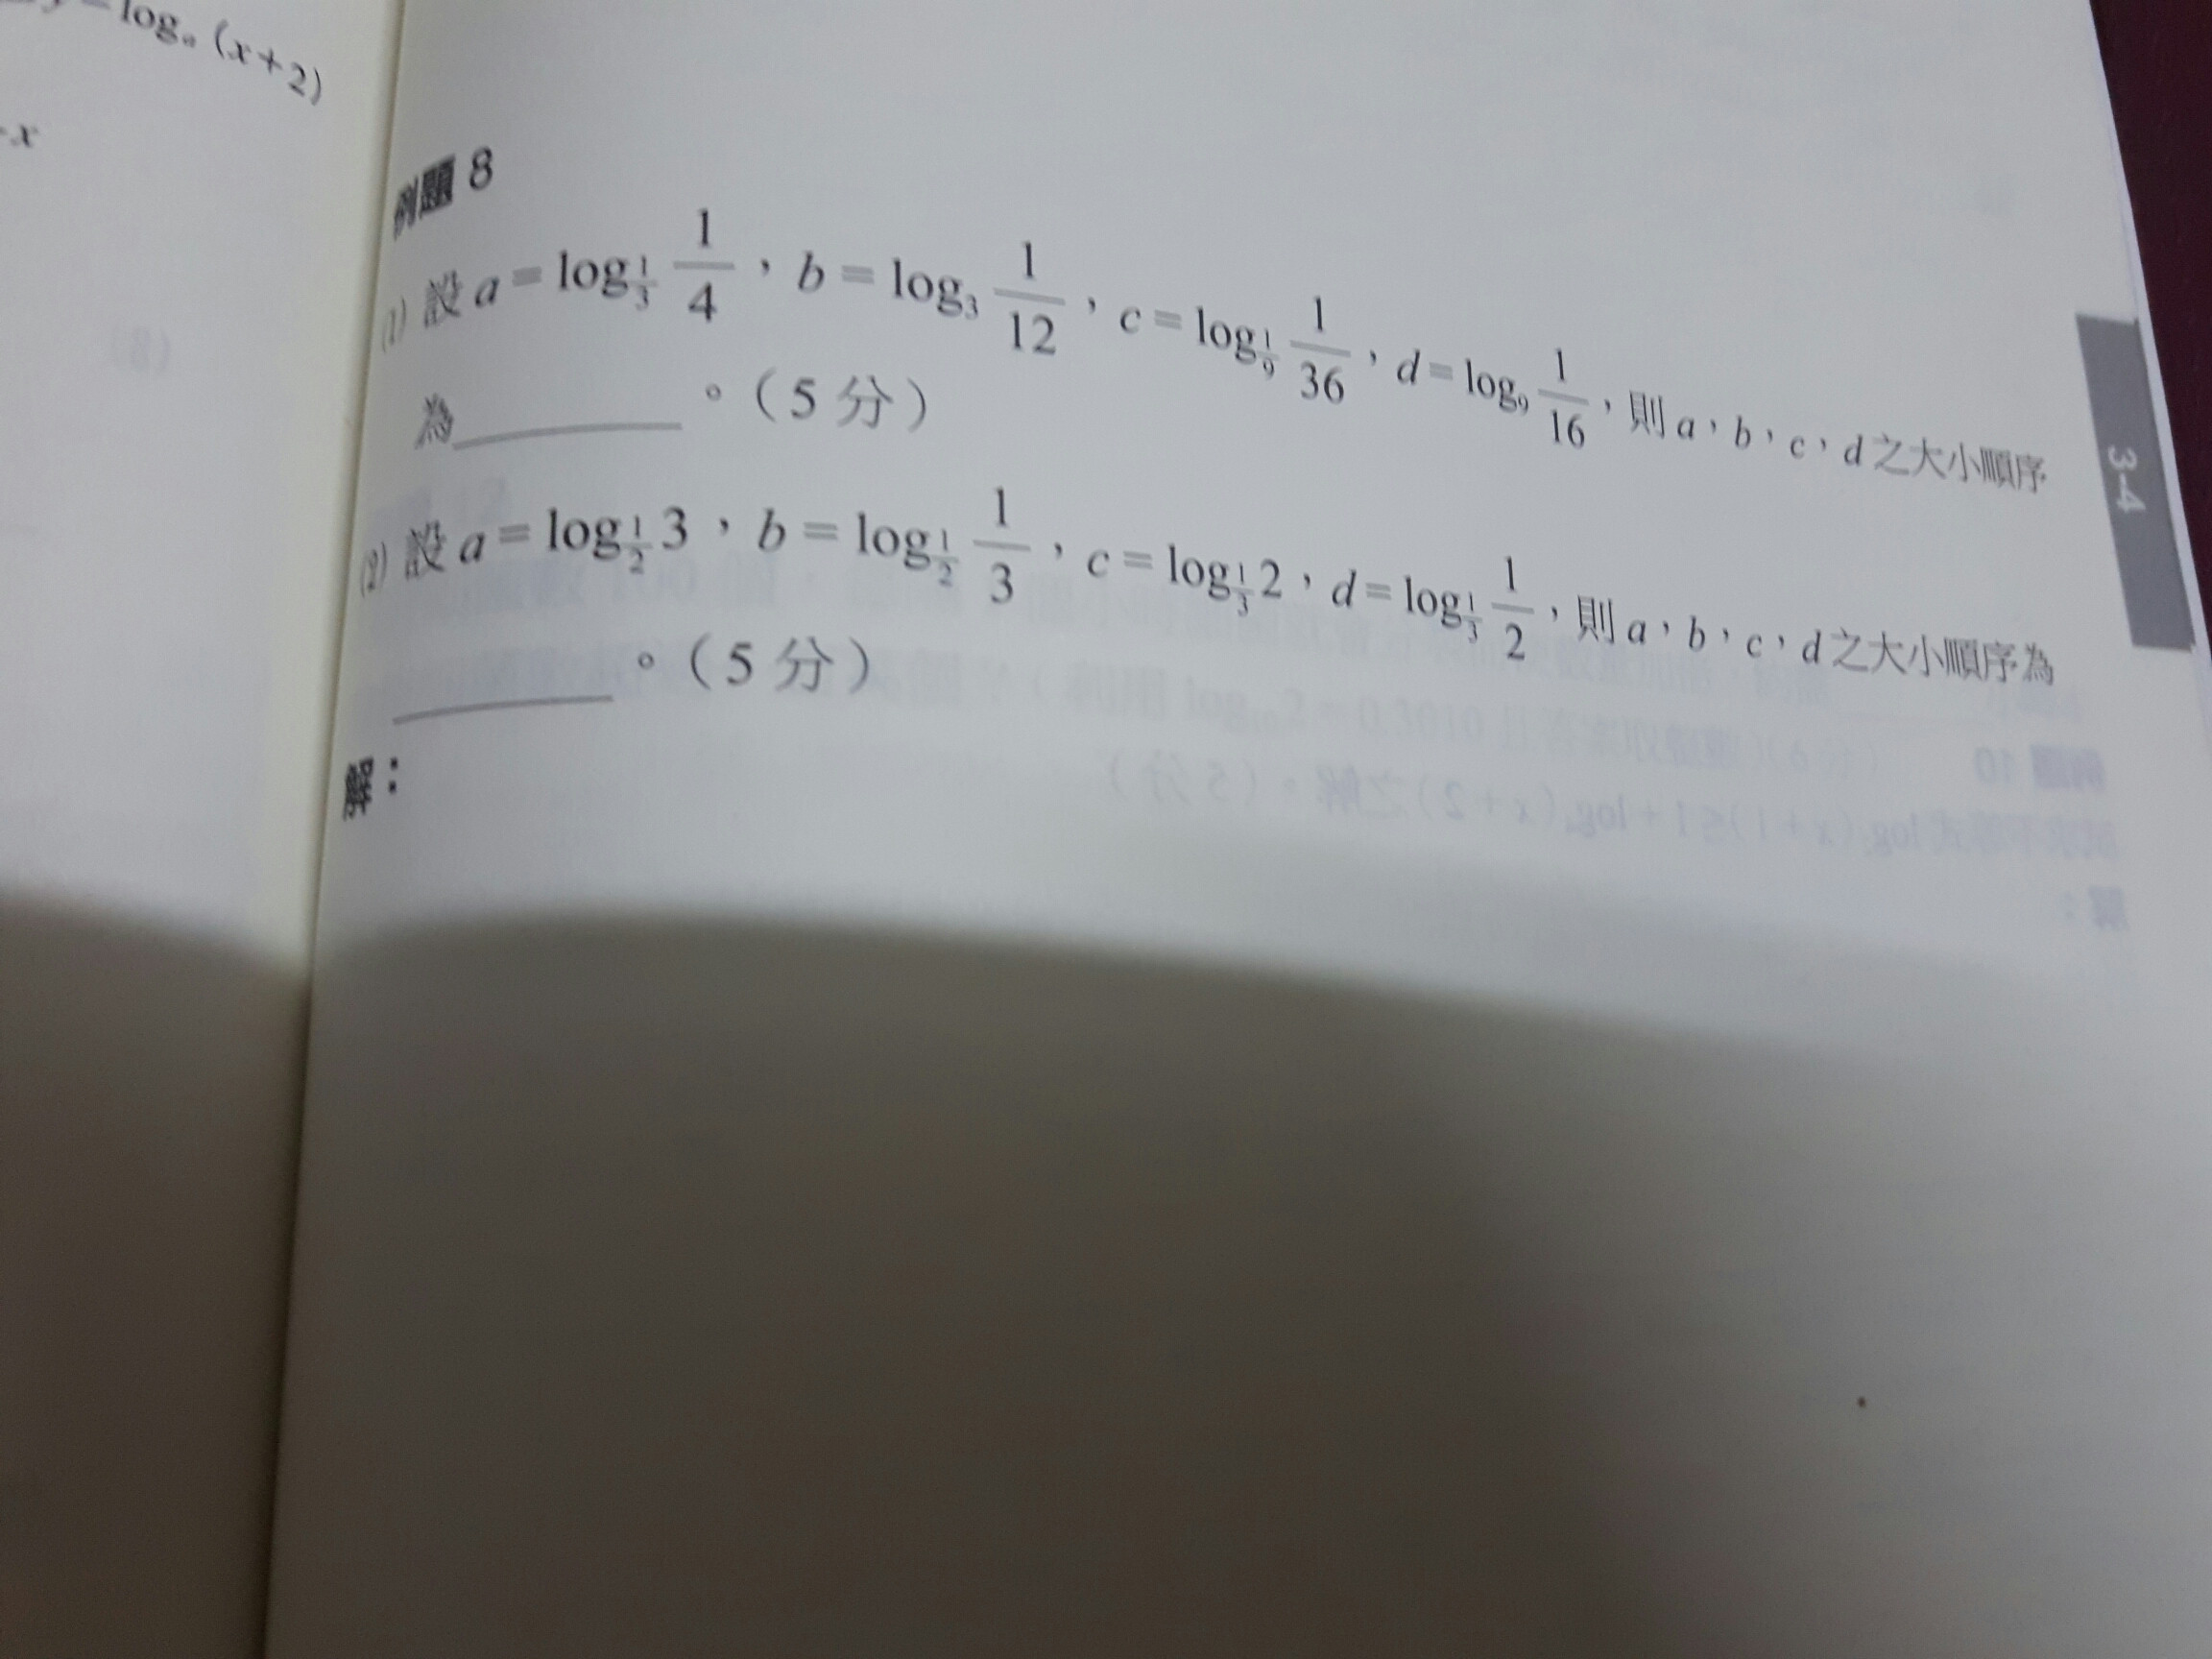 log
(x+2)
x
例題 8
(1) 設 a = log_{1/3} 1/4 , b = log_3 1/12 , c = log_{1/9} 1/36 , d = log_9 1/16 , 則 a , b , c , d 之大小順序
為________。(5 分)
(2) 設 a = log_{1/2} 3 , b = log_{1/2} 1/3 , c = log_{1/3} 2 , d = log_{1/3} 1/2 , 則 a , b , c , d 之大小順序為
________。(5 分)
解:
3-4